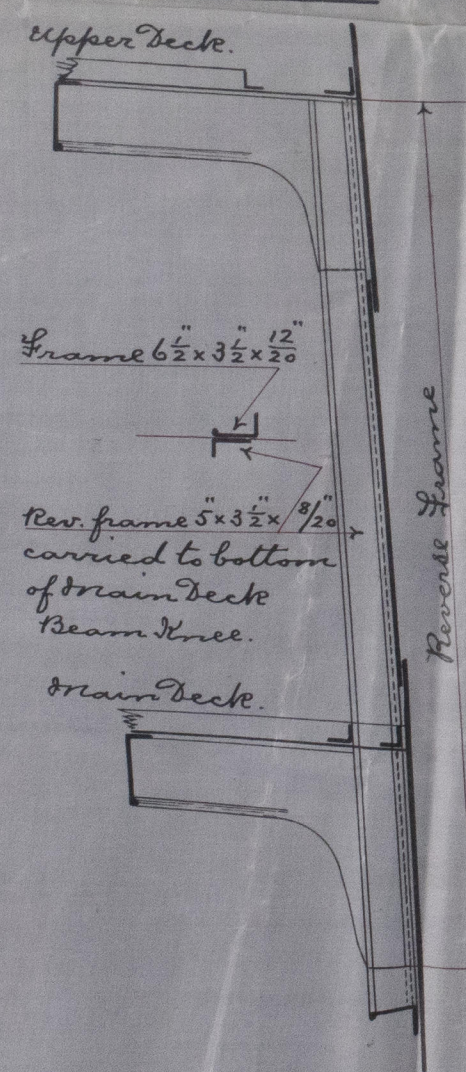 Upper Deck.
Frame 6 1/2" x 3 1/2" x 12/20"
Rev. frame 5" x 3 1/2" x 8/20"
carried to bottom
of Main Deck
Beam Knee.
Main Deck.
Reverse Frame